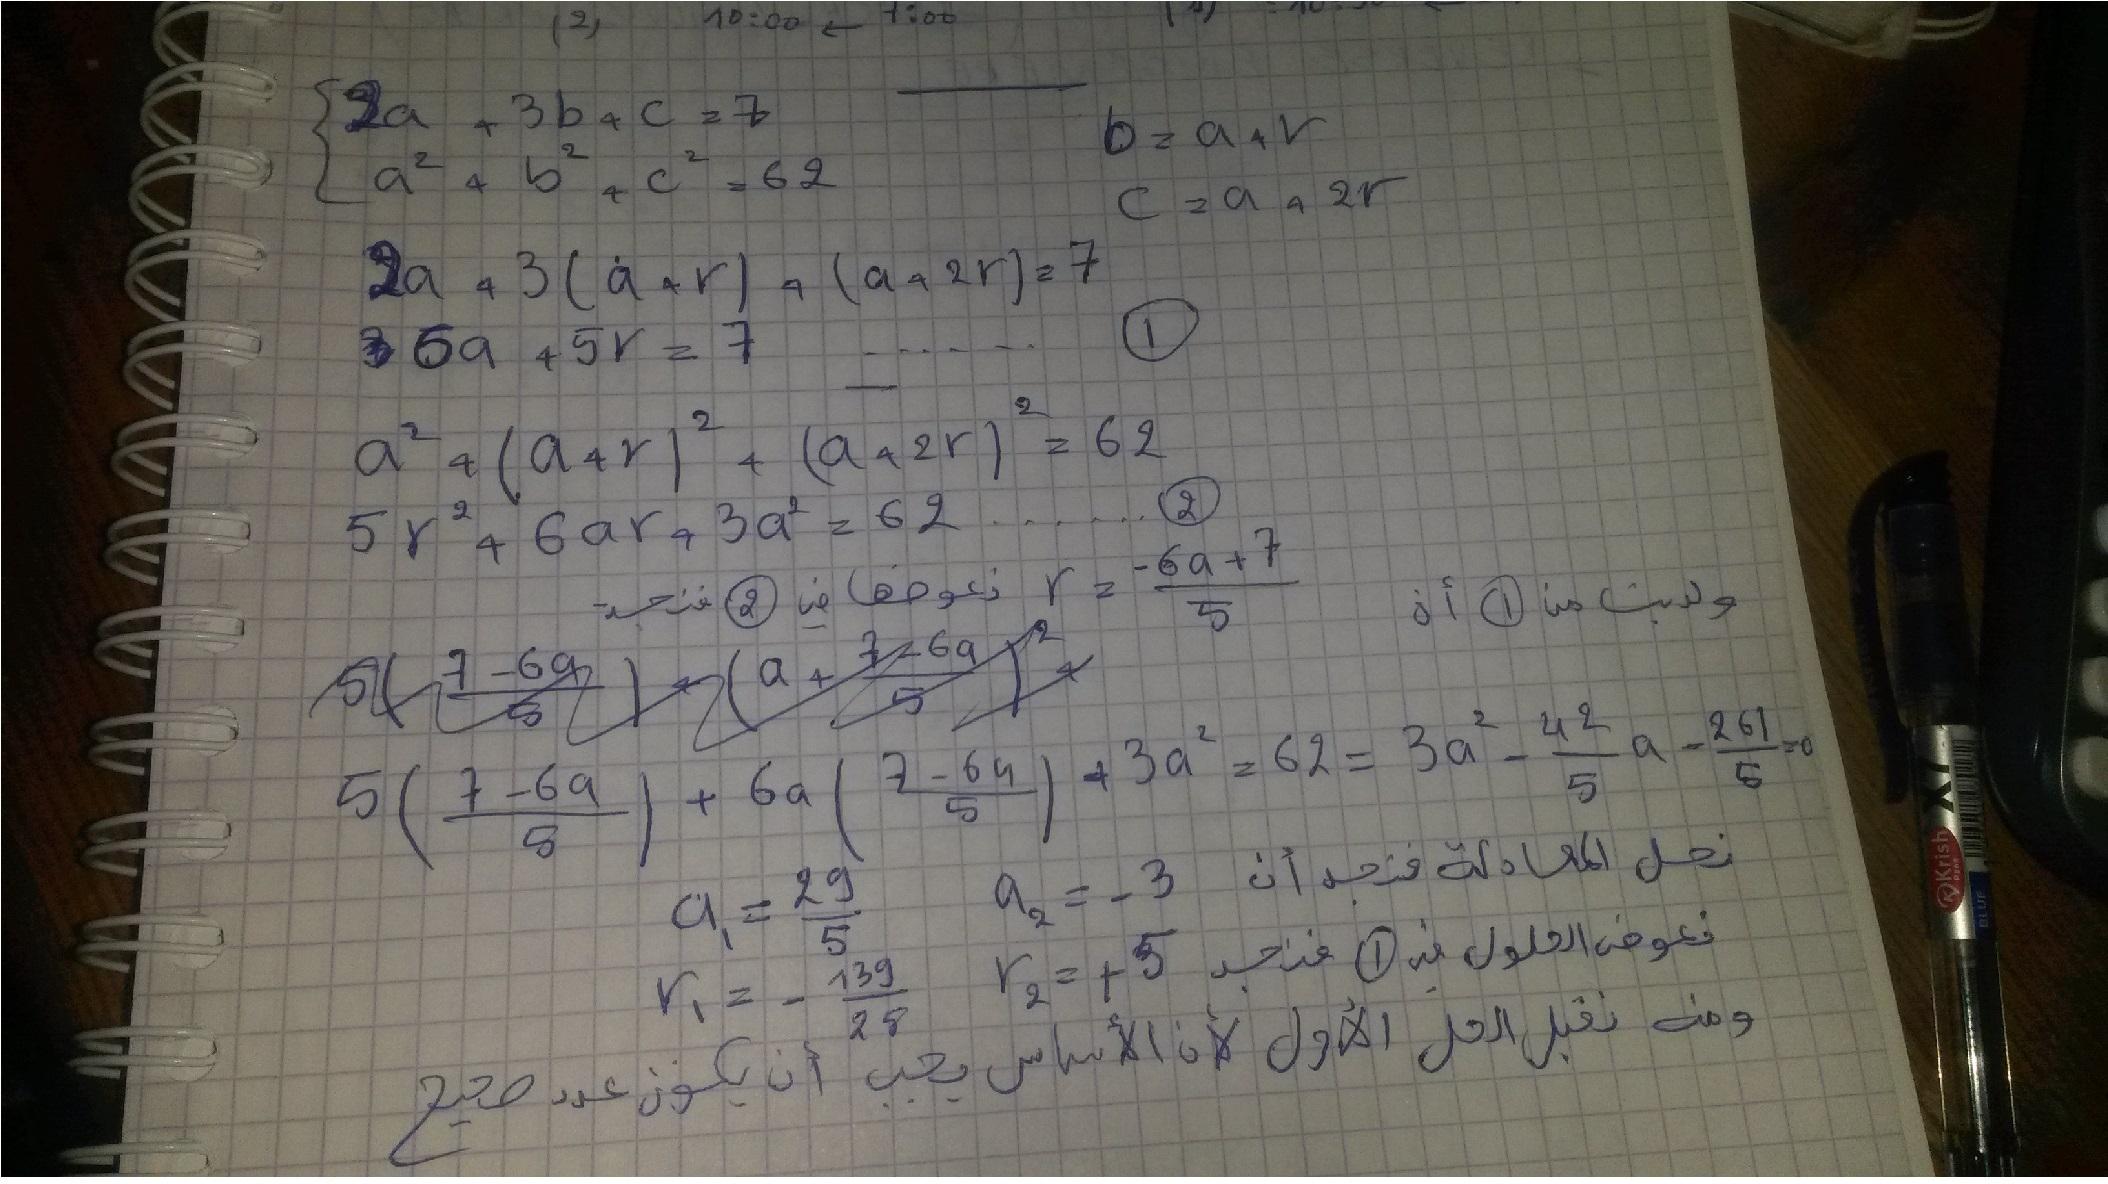 (2) 10:00 ← 7:00
2a + 3b + c = 7
a² + b² + c² = 62
b = a + r
c = a + 2r
2a + 3(a + r) + (a + 2r) = 7
6a + 5r = 7 ...... ①
a² + (a + r)² + (a + 2r)² = 62
5r² + 6ar + 3a² = 62 ....... ②
من ① أن r = (-6a + 7)/5 نعوضها في ② فنجد
5((7 - 6a)/5) + (a + (7 - 6a)/5)² +
5((7 - 6a)/5) + 6a((7 - 6a)/5) + 3a² = 62 = 3a² - 42/5 a - 261/5 = 0
نحل المعادلة فنجد أن a₂ = -3 a₁ = 29/5
نعوض الحلول في ① فنجد r₂ = +5 r₁ = - 139/25
ومنه نقبل الحل الأول لأن الأساس يجب أن يكون عدد صحيح
Krish
BLUE